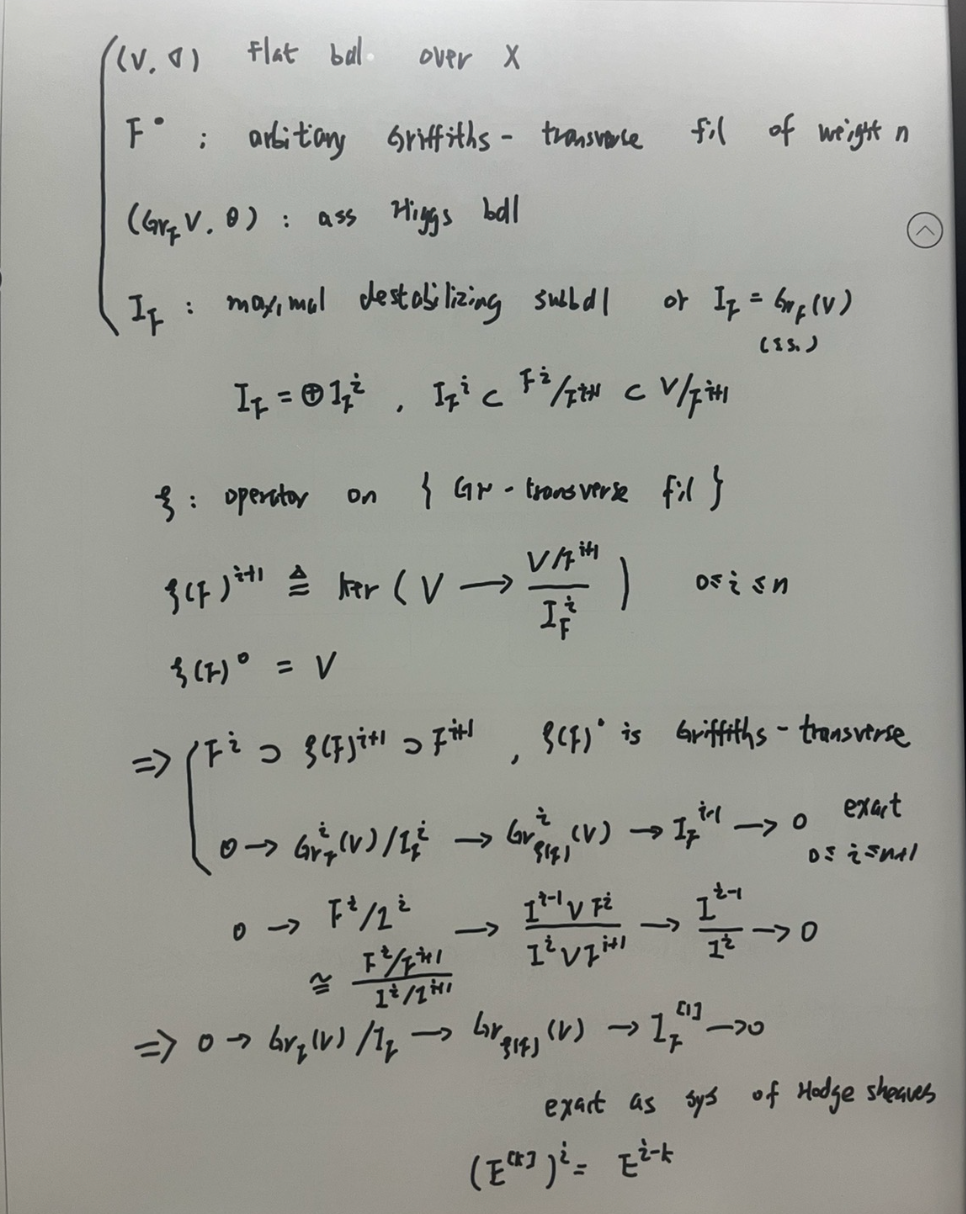 (V, ∇) Flat bdl. over X
F^• : arbitary Griffiths - transverse fil of weight n
(Gr_F V, θ) : ass Higgs bdl
I_F : maximal destabilizing subbdl or I_F = Gr_F(V)
(ss.)
I_F = ⊕ I_F^i , I_F^i ⊂ F^i/F^{i+1} ⊂ V/F^{i+1}
ξ : operator on { Gr - transverse fil }
ξ(F)^{i+1} ≜ ker ( V → \frac{V/F^{i+1}}{I_F^i} ) 0 ≤ i ≤ n
ξ(F)^0 = V
⇒ F^i ⊃ ξ(F)^{i+1} ⊃ F^{i+1} , ξ(F)^• is Griffiths - transverse
0 → Gr_F^i(V)/I_F^i → Gr_{ξ(F)}^i(V) → I_F^{i-1} → 0 exact
0 ≤ i ≤ n+1
0 → F^i/I^i → \frac{I^{i-1} ∨ F^i}{I^i ∨ F^{i+1}} → \frac{I^{i-1}}{I^i} → 0
≅ \frac{F^i/F^{i+1}}{I^i/I^{i+1}}
⇒ 0 → Gr_F(V)/I_F → Gr_{ξ(F)}(V) → I_F^{[1]} → 0
exact as sys of Hodge sheaves
(E^{[k]})^i = E^{i-k}